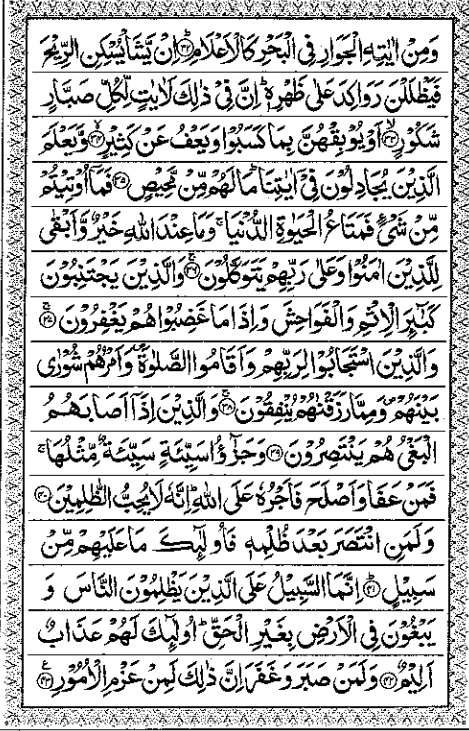 وَمِنْ اٰیٰتِهِ الْجَوَارِ فِی الْبَحْرِ كَالْاَعْلَامِ ؕ﴿۳۲﴾ اِنْ یَّشَاْ یُسْكِنِ الرِّیْحَ
فَیَظْلَلْنَ رَوَاكِدَ عَلٰی ظَهْرِهٖ ؕ اِنَّ فِیْ ذٰلِكَ لَاٰیٰتٍ لِّكُلِّ صَبَّارٍ
شَكُوْرٍ ۙ﴿۳۳﴾ اَوْ یُوْبِقْهُنَّ بِمَا كَسَبُوْا وَیَعْفُ عَنْ كَثِیْرٍ ؗ﴿۳۴﴾ وَّیَعْلَمَ
الَّذِیْنَ یُجَادِلُوْنَ فِیْۤ اٰیٰتِنَا ؕ مَا لَهُمْ مِّنْ مَّحِیْصٍ ﴿۳۵﴾ فَمَاۤ اُوْتِیْتُمْ
مِّنْ شَیْءٍ فَمَتَاعُ الْحَیٰوةِ الدُّنْیَا ۚ وَمَا عِنْدَ اللّٰهِ خَیْرٌ وَّاَبْقٰی
لِلَّذِیْنَ اٰمَنُوْا وَعَلٰی رَبِّهِمْ یَتَوَكَّلُوْنَ ۚ﴿۳۶﴾ وَالَّذِیْنَ یَجْتَنِبُوْنَ
كَبٰٓئِرَ الْاِثْمِ وَالْفَوَاحِشَ وَاِذَا مَا غَضِبُوْا هُمْ یَغْفِرُوْنَ ۚ﴿۳۷﴾
وَالَّذِیْنَ اسْتَجَابُوْا لِرَبِّهِمْ وَاَقَامُوا الصَّلٰوةَ ۪ وَاَمْرُهُمْ شُوْرٰی
بَیْنَهُمْ ۪ وَمِمَّا رَزَقْنٰهُمْ یُنْفِقُوْنَ ۚ﴿۳۸﴾ وَالَّذِیْنَ اِذَاۤ اَصَابَهُمُ
الْبَغْیُ هُمْ یَنْتَصِرُوْنَ ﴿۳۹﴾ وَجَزٰٓؤُا سَیِّئَةٍ سَیِّئَةٌ مِّثْلُهَا ۚ
فَمَنْ عَفَا وَاَصْلَحَ فَاَجْرُهٗ عَلَی اللّٰهِ ؕ اِنَّهٗ لَا یُحِبُّ الظّٰلِمِیْنَ ﴿۴۰﴾
وَلَمَنِ انْتَصَرَ بَعْدَ ظُلْمِهٖ فَاُولٰٓئِكَ مَا عَلَیْهِمْ مِّنْ
سَبِیْلٍ ؕ﴿۴۱﴾ اِنَّمَا السَّبِیْلُ عَلَی الَّذِیْنَ یَظْلِمُوْنَ النَّاسَ وَ
یَبْغُوْنَ فِی الْاَرْضِ بِغَیْرِ الْحَقِّ ؕ اُولٰٓئِكَ لَهُمْ عَذَابٌ
اَلِیْمٌ ﴿۴۲﴾ وَلَمَنْ صَبَرَ وَغَفَرَ اِنَّ ذٰلِكَ لَمِنْ عَزْمِ الْاُمُوْرِ ۠﴿۴۳﴾